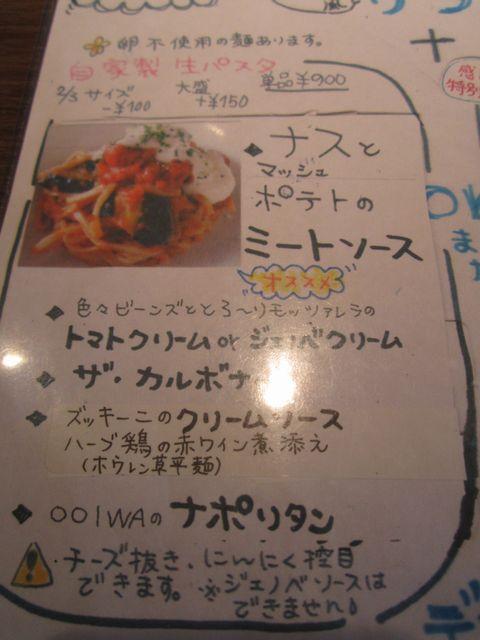 卵不使用の麺あります。
自家製生パスタ 単品¥900
2/3サイズ -¥100 大盛 +¥150
+
感
特別
◆ ナスと
マッシュ
ポテトの
ミートソース
オススメ
◆ 色々ビーンズととろ〜りモッツァレラの
トマトクリーム or ジェノベクリーム
◆ ザ・カルボナ
◆ ズッキーニのクリームソース
ハーブ鶏の赤ワイン煮添え
(ホウレン草平麺)
◆ OOIWAの ナポリタン
・チーズ抜き、にんにく控目
できます。※ジェノベソースは
できません!